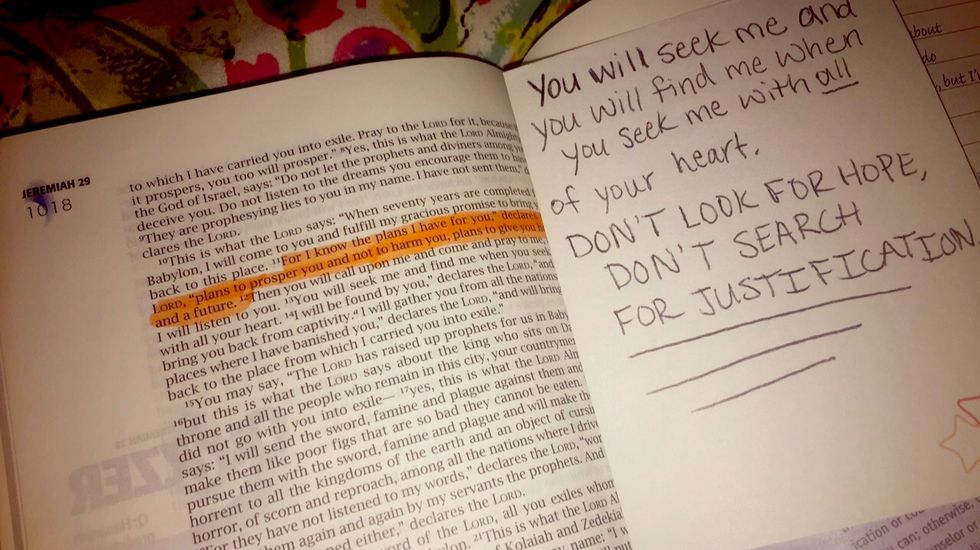 JEREMIAH 29
1018
to which I have carried you into exile. Pray to the LORD for it, because
it prospers, you too will prosper." ⁸Yes, this is what the LORD Almighty
the God of Israel, says: "Do not let the prophets and diviners among
deceive you. Do not listen to the dreams you encourage them to
⁹They are prophesying lies to you in my name. I have not sent them,"
clares the LORD.
¹⁰This is what the LORD says: "When seventy years are completed
Babylon, I will come to you and fulfill my gracious promise to bring
back to this place. ¹¹For I know the plans I have for you," declares
LORD, "plans to prosper you and not to harm you, plans to give you
and a future. ¹²Then you will call upon me and come and pray to me,
I will listen to you. ¹³You will seek me and find me when you seek
with all your heart. ¹⁴I will be found by you," declares the LORD, "and
bring you back from captivity. I will gather you from all the nations
places where I have banished you," declares the LORD, "and will bring
back to the place from which I carried you into exile."
¹⁵You may say, "The LORD has raised up prophets for us in
¹⁶but this is what the LORD says about the king who sits on
throne and all the people who remain in this city, your countrymen
did not go with you into exile— ¹⁷yes, this is what the LORD
says: "I will send the sword, famine and plague against them and
make them like poor figs that are so bad they cannot be eaten.
pursue them with the sword, famine and plague and will make
horrent to all the kingdoms of the earth and an object of
horror, of scorn and reproach, among all the nations where I
For they have not listened to my words," declares the LORD,
them again and again by my servants the prophets. And
either," declares the LORD.
word of the LORD, all you exiles whom
²¹This is what the LORD
of Kolaiah and
name: "I
You will seek me and
you will find me when
you seek me with all
of your heart.
DON'T LOOK FOR HOPE,
DON'T SEARCH
FOR JUSTIFICATION
about
do
, but I'
can; otherwise,